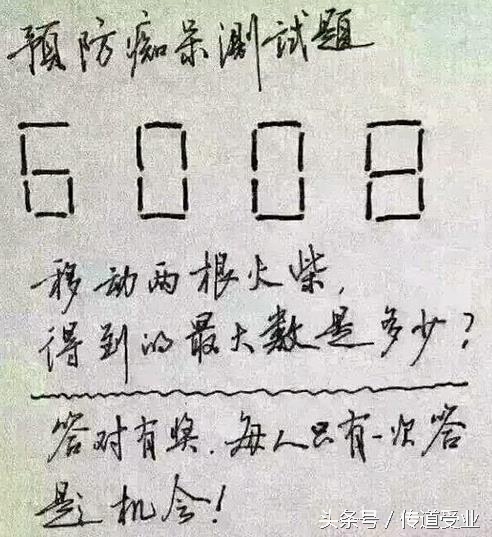 预防痴呆测试题
6008
移动两根火柴,
得到的最大数是多少?
答对有奖.每人只有一次答
题机会!
头条号 / 传道受业